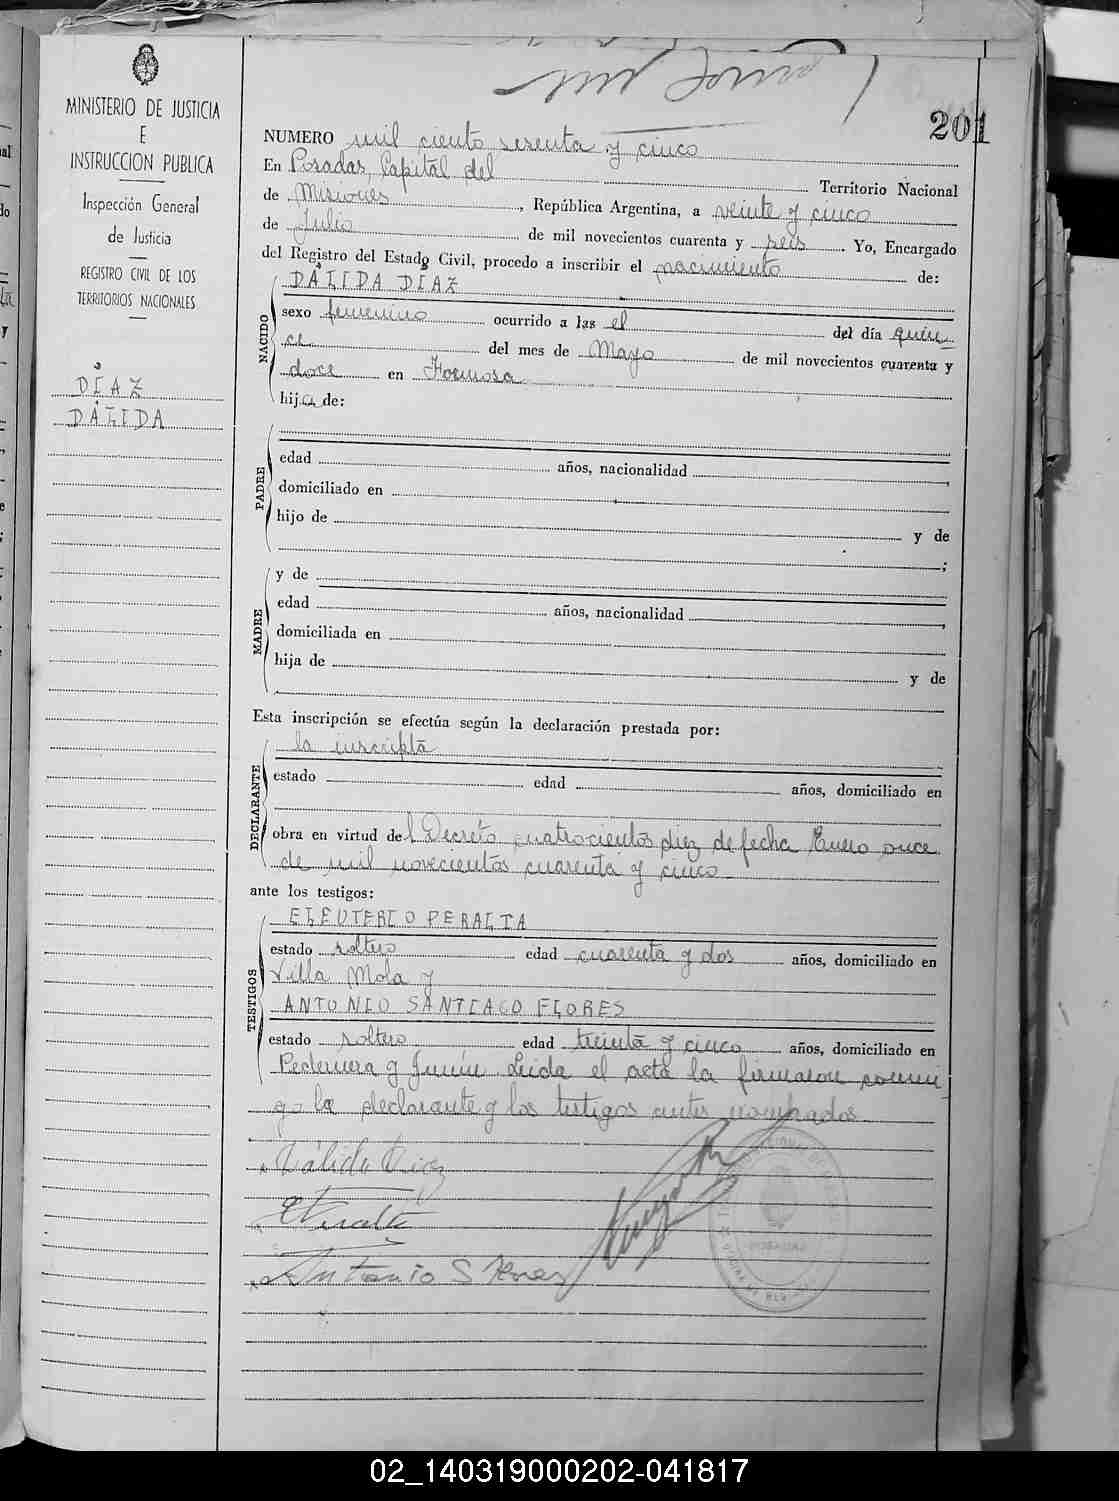 MINISTERIO DE JUSTICIA
E
INSTRUCCION PUBLICA
Inspección General
de Justicia
REGISTRO CIVIL DE LOS
TERRITORIOS NACIONALES
DÍAZ
DÁLIDA
201
NUMERO mil ciento sesenta y cinco
En Posadas, Capital del Territorio Nacional
de Misiones, República Argentina, a veinte y cinco
de Julio de mil novecientos cuarenta y seis. Yo, Encargado
del Registro del Estado Civil, procedo a inscribir el nacimiento de:
NACIDO
DÁLIDA DÍAZ
sexo femenino ocurrido a las el del día quin-
ce del mes de Mayo de mil novecientos cuarenta y
doce en Formosa
hija de:
PADRE
edad años, nacionalidad ,
domiciliado en
hijo de y de
;
MADRE
y de
edad años, nacionalidad ,
domiciliada en
hija de y de
Esta inscripción se efectúa según la declaración prestada por:
DECLARANTE
la inscripta
estado edad años, domiciliado en
obra en virtud del Decreto cuatrocientos diez de fecha Enero once
de mil novecientos cuarenta y cinco
ante los testigos:
TESTIGOS
ELEUTERIO PERALTA
estado soltero edad cuarenta y dos años, domiciliado en
Villa Mola y
ANTONIO SANTIAGO FLORES
estado soltero edad treinta y cinco años, domiciliado en
Pedernera y Junín. Leida el acta la firmaron conmi
go la declarante y los testigos antes nombrados
Dálida Diaz
E Peralta
Antonio S Flores
POSADAS
02_140319000202-041817